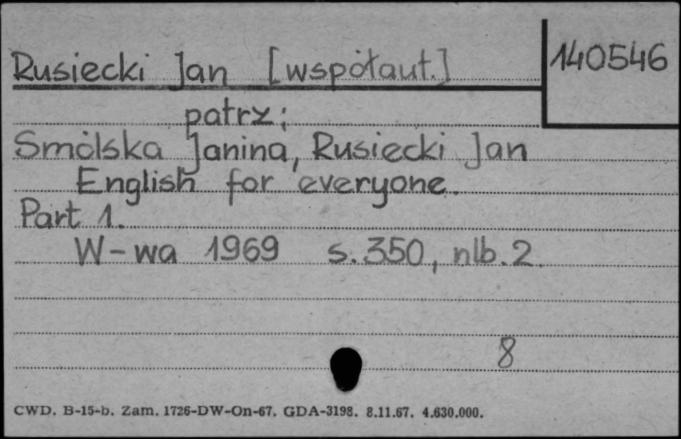 Rusiecki Jan [współaut.]
140546
patrz:
Smólska Janina, Rusiecki Jan
English for everyone.
Part 1.
W-wa 1969 s. 350, nlb. 2
8
CWD. B-15-b. Zam. 1726-DW-On-67. GDA-3198. 8.11.67. 4.630.000.